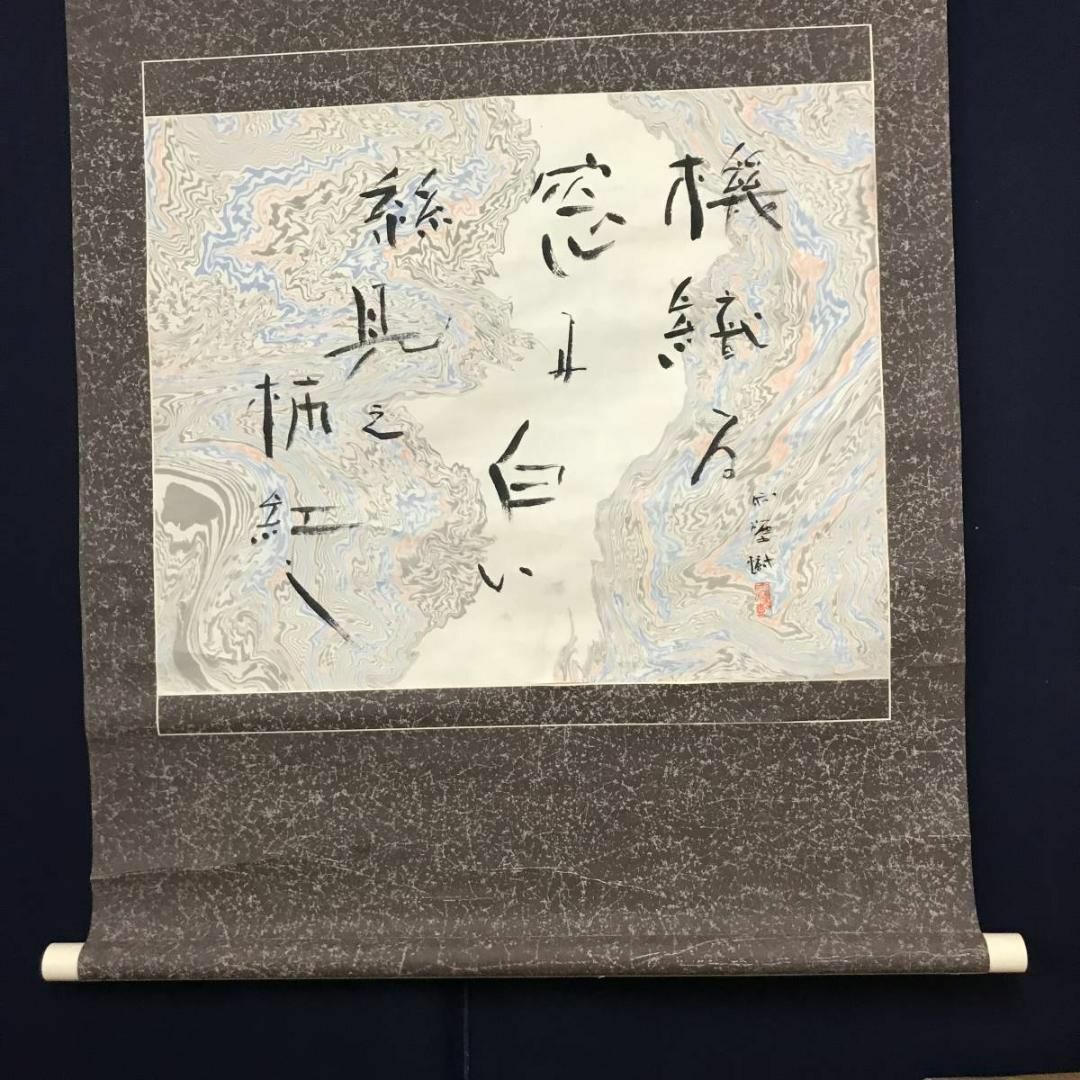 機織る
窓 白い
絲見え
柿紅く